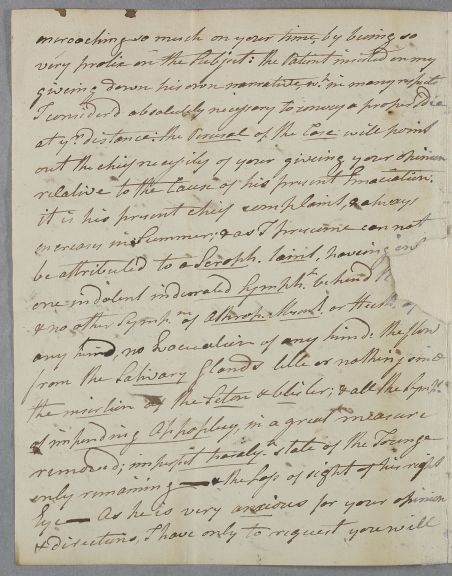 encroaching so much on your time, by being so
very prolix on the Subject: the Patient insisted on my
giveing down his own narrative, wch. in many respects
I consider'd absolutely necessary to convey a proper Idea
at yr. distance. the Perusal of the Case will point
out the chief necessity of your giveing your opinion
relative to the Cause of his present Emaciation.
it is his present chief complaint, & always
increases in Summer; & as I presume can not
be attributed to a Scroph. taint, haveing only
one indolent indurated Lymph:c behind
& no other Symp:m of Hect: of
any kind, no Evacuation of any kind. the flow
from the Salivary Glands little or nothing since
the insertion of the Seton & blister; & all the Symp:s
of impending Appoplexy, in a great measure
removed; state of the Tounge
only remaining — & the loss of sight of his right
Eye — As he is very anxious for your opinion
& directions, I have only to request you will